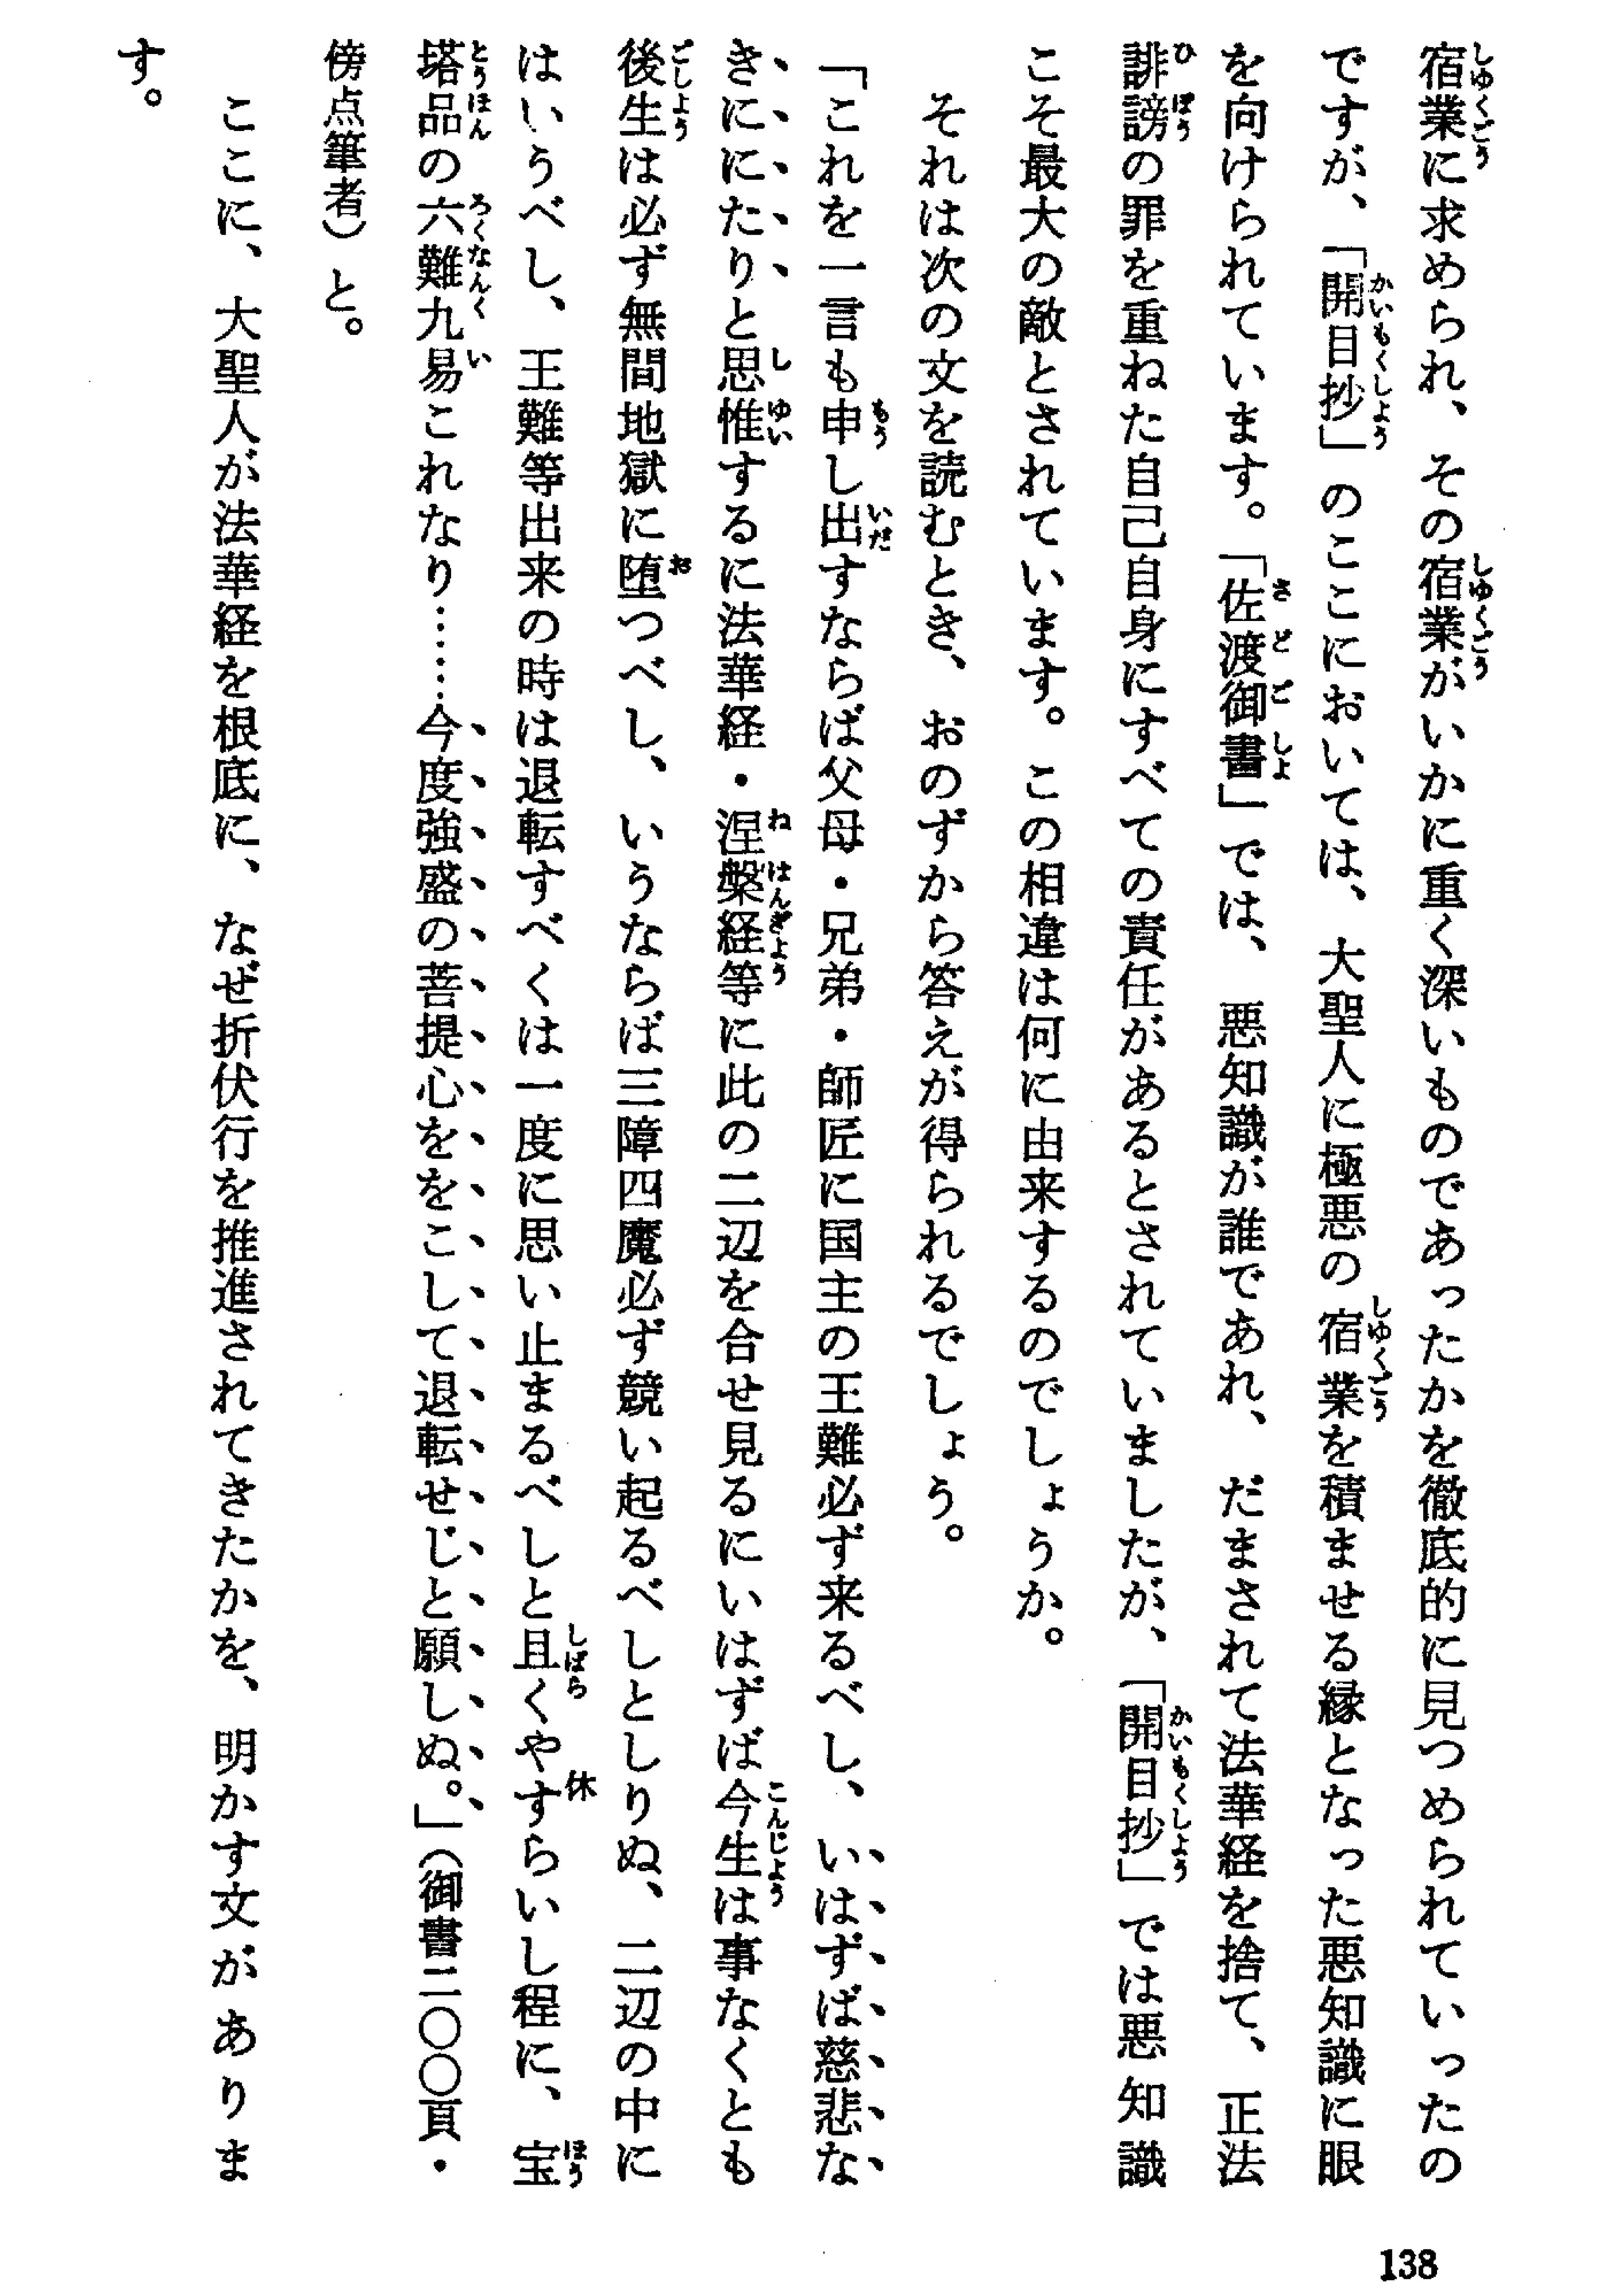 宿業に求められ、その宿業がいかに重く深いものであったかを徹底的に見つめられていったの
ですが、「開目抄」のここにおいては、大聖人に極悪の宿業を積ませる縁となった悪知識に眼
を向けられています。「佐渡御書」では、悪知識が誰であれ、だまされて法華経を捨て、正法
誹謗の罪を重ねた自己自身にすべての責任があるとされていましたが、「開目抄」では悪知識
こそ最大の敵とされています。この相違は何に由来するのでしょうか。
それは次の文を読むとき、おのずから答えが得られるでしょう。
「これを一言も申し出すならば父母・兄弟・師匠に国主の王難必ず来るべし、いはずば慈悲な
きににたりと思惟するに法華経・涅槃経等に此の二辺を合せ見るにいはずば今生は事なくとも
後生は必ず無間地獄に堕つべし、いうならば三障四魔必ず競い起るべしとしりぬ、二辺の中に
はいうべし、王難等出来の時は退転すべくは一度に思い止まるべしと且くやすらいし程に、宝
塔品の六難九易これなり……今度強盛の菩提心ををこして退転せじと願しぬ。」（御書二〇〇頁・
傍点筆者）と。
ここに、大聖人が法華経を根底に、なぜ折伏行を推進されてきたかを、明かす文がありま
す。
138